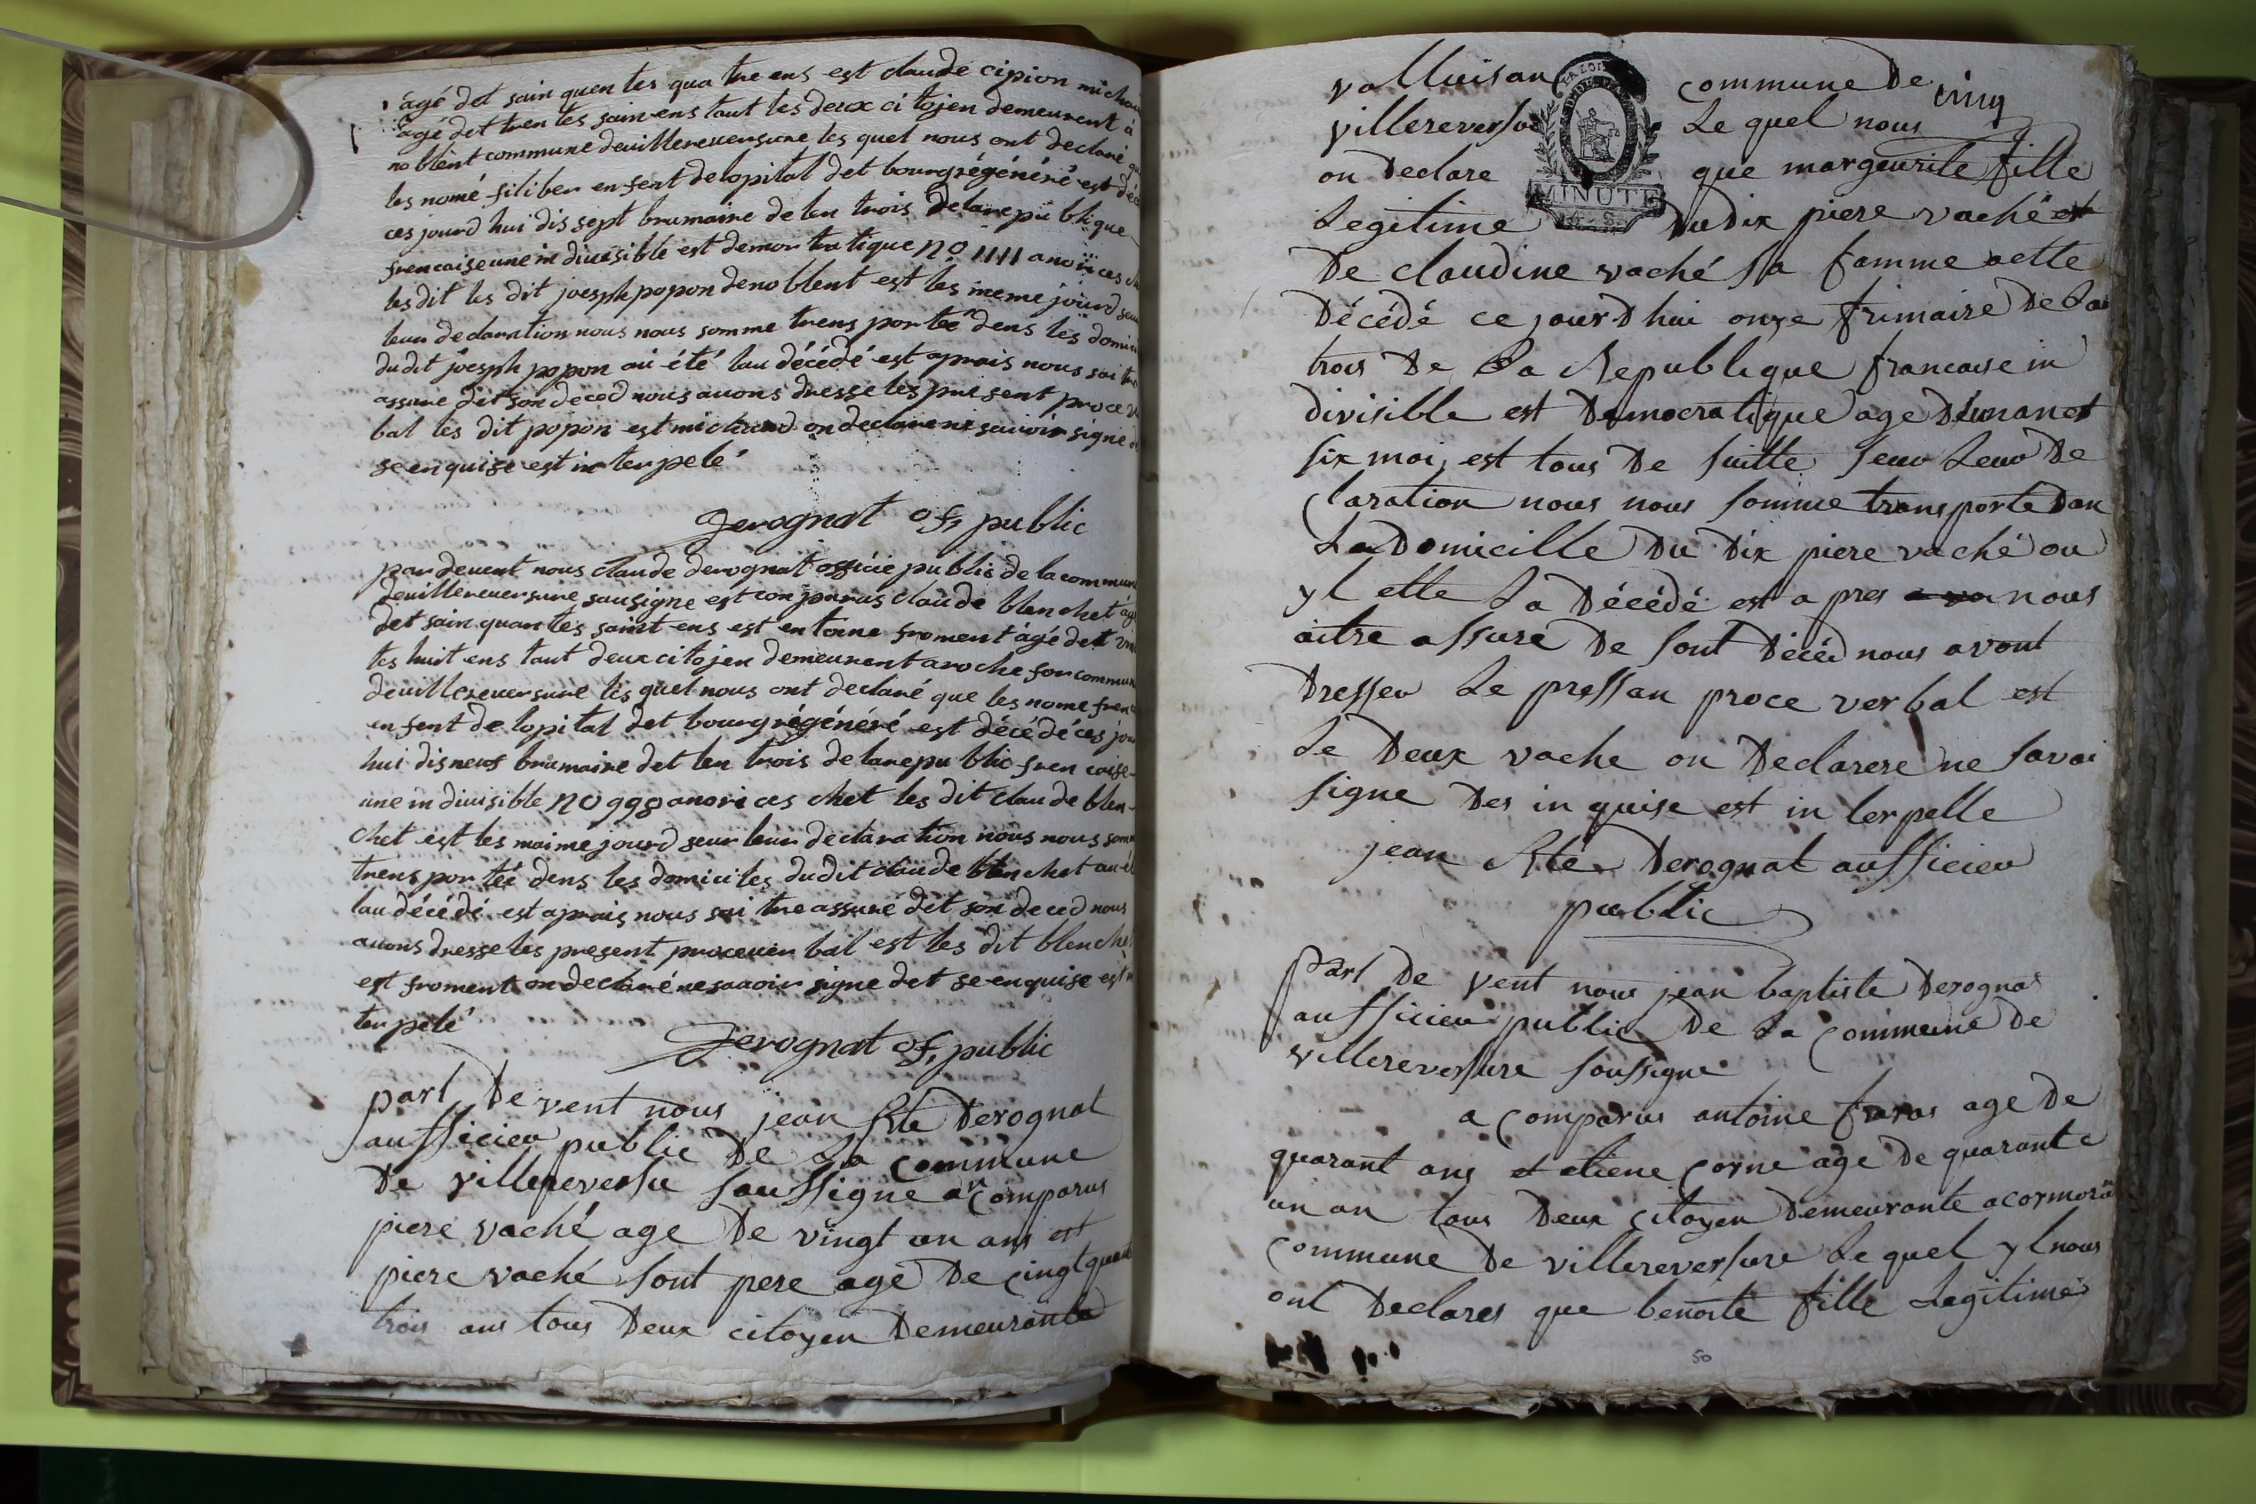 agé det sain quen tes qua tre ens est claude cipion micha
agé det tren tes sain ens taut tes deux ci tojen demeurent à
no blent commune deuillereuersure les quel nous ont declaré
les nomé filiber en fent de lopital det bourgrégénéré est dé
ces jourd hui dis sept brumaire de len trois de lare pu blique
frencaise une in diuisible est demon tra tique no 1111
les dit les dit joesph popon de no blent est les meme jourd
leur declaration nous nous somme trens por teé dens les domi
du dit joesph popon au été lau décédé est aprais nous sai tre
assure det son deced nous auons dresse les present proce
bal les dit popon est michaud on declare ne sauoir signe
se en quise est in ter pelé
Derognat of, public
par deuent nous claude derognat officié public de la commun
deuillereuersure sousigne est con parus claude blenchet
det sain quantes saint ens est en toine froment àgé det
tes huit ens taut deux citojen demeurent a roche for commun
deuillereuersure les quel nous ont declaré que les nome fren
en fent de lopital det bourgrégénéré est décédé ces jou
hui dis neuf brumaire det len trois de lare pu blic fren caise
une in diuisible no 998 ces chet les dit claude blen-
chet est les maime jourd seur leur declaration nous nous som
trens por teé dens les domiciles du dit claude blenchet au
lau décédé est aprais nous sai tre assure det son deced nous
auons dresse les present proceuer bal est les dit blenche
est froment on declaré ne sauoir signe det se enquise est
ter pelé
Derognat of, public
part De vent nous jean Bte Derognat
aufficieu public De La Commune
De villereversu Soussigne an Comparus
piere vaché age De vingt un ans est
piere vaché Sont pere age De Cingt quant
trois ans tous Deux citoyen Demeurante
commune De cinq
villereversu Le quel nous
on Declare que margeurite fille
Legitime Du Dix piere vaché est
De claudine vaché Sa famme aette
Décédé ce jour D hui onze frimaire De Lan
trois De La Republique francaise in
divisible est Democratique age D'un an et
Six moi, est tous De Suitte Seur Leur De
Claration nous nous Somme transporte Dan
La Domicille Du Dix piere vaché ou
yl ette La Décédé est a pres nous
aitre assure De Sont Décéd nous avont
Dresseu Le pressan proce verbal est
Le Deux vache on Declarere ne Savoi
Signe Des in quise est in terpelle
jean Bte Derognat aufficieu
public
part De vent nous jean baptiste Derognas
aufficieu public De La Commune De
villereversure Soussigne
a Comparus antoine faras age De
quarant ans et etiene Corne age De quarante
un an tous Deux Citoyen Demeurante a cormoran
Commune De villereversure Le quel yl nous
ont Declares que benoite fille Legitimes
MINUTE
50